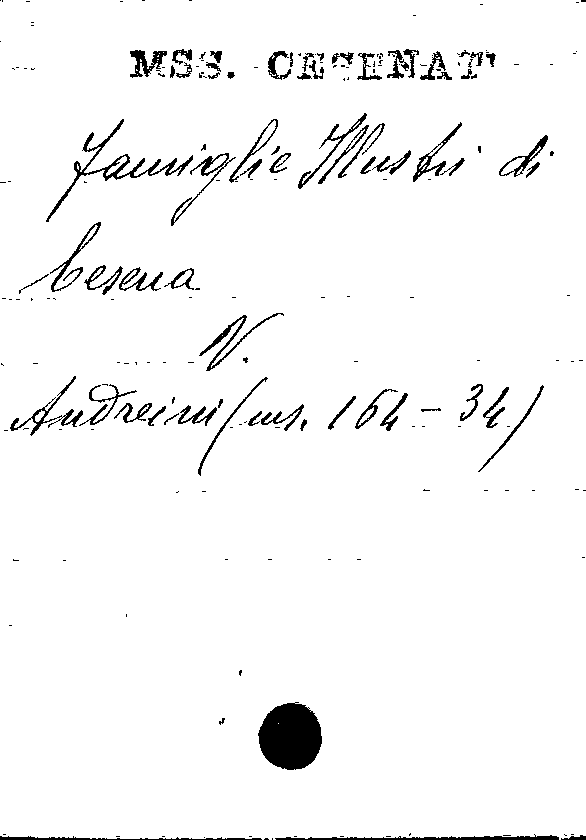 MSS. CESENATI
Famiglie Illustri di
Cesena
V.
Andreini (ms. 164 - 34)